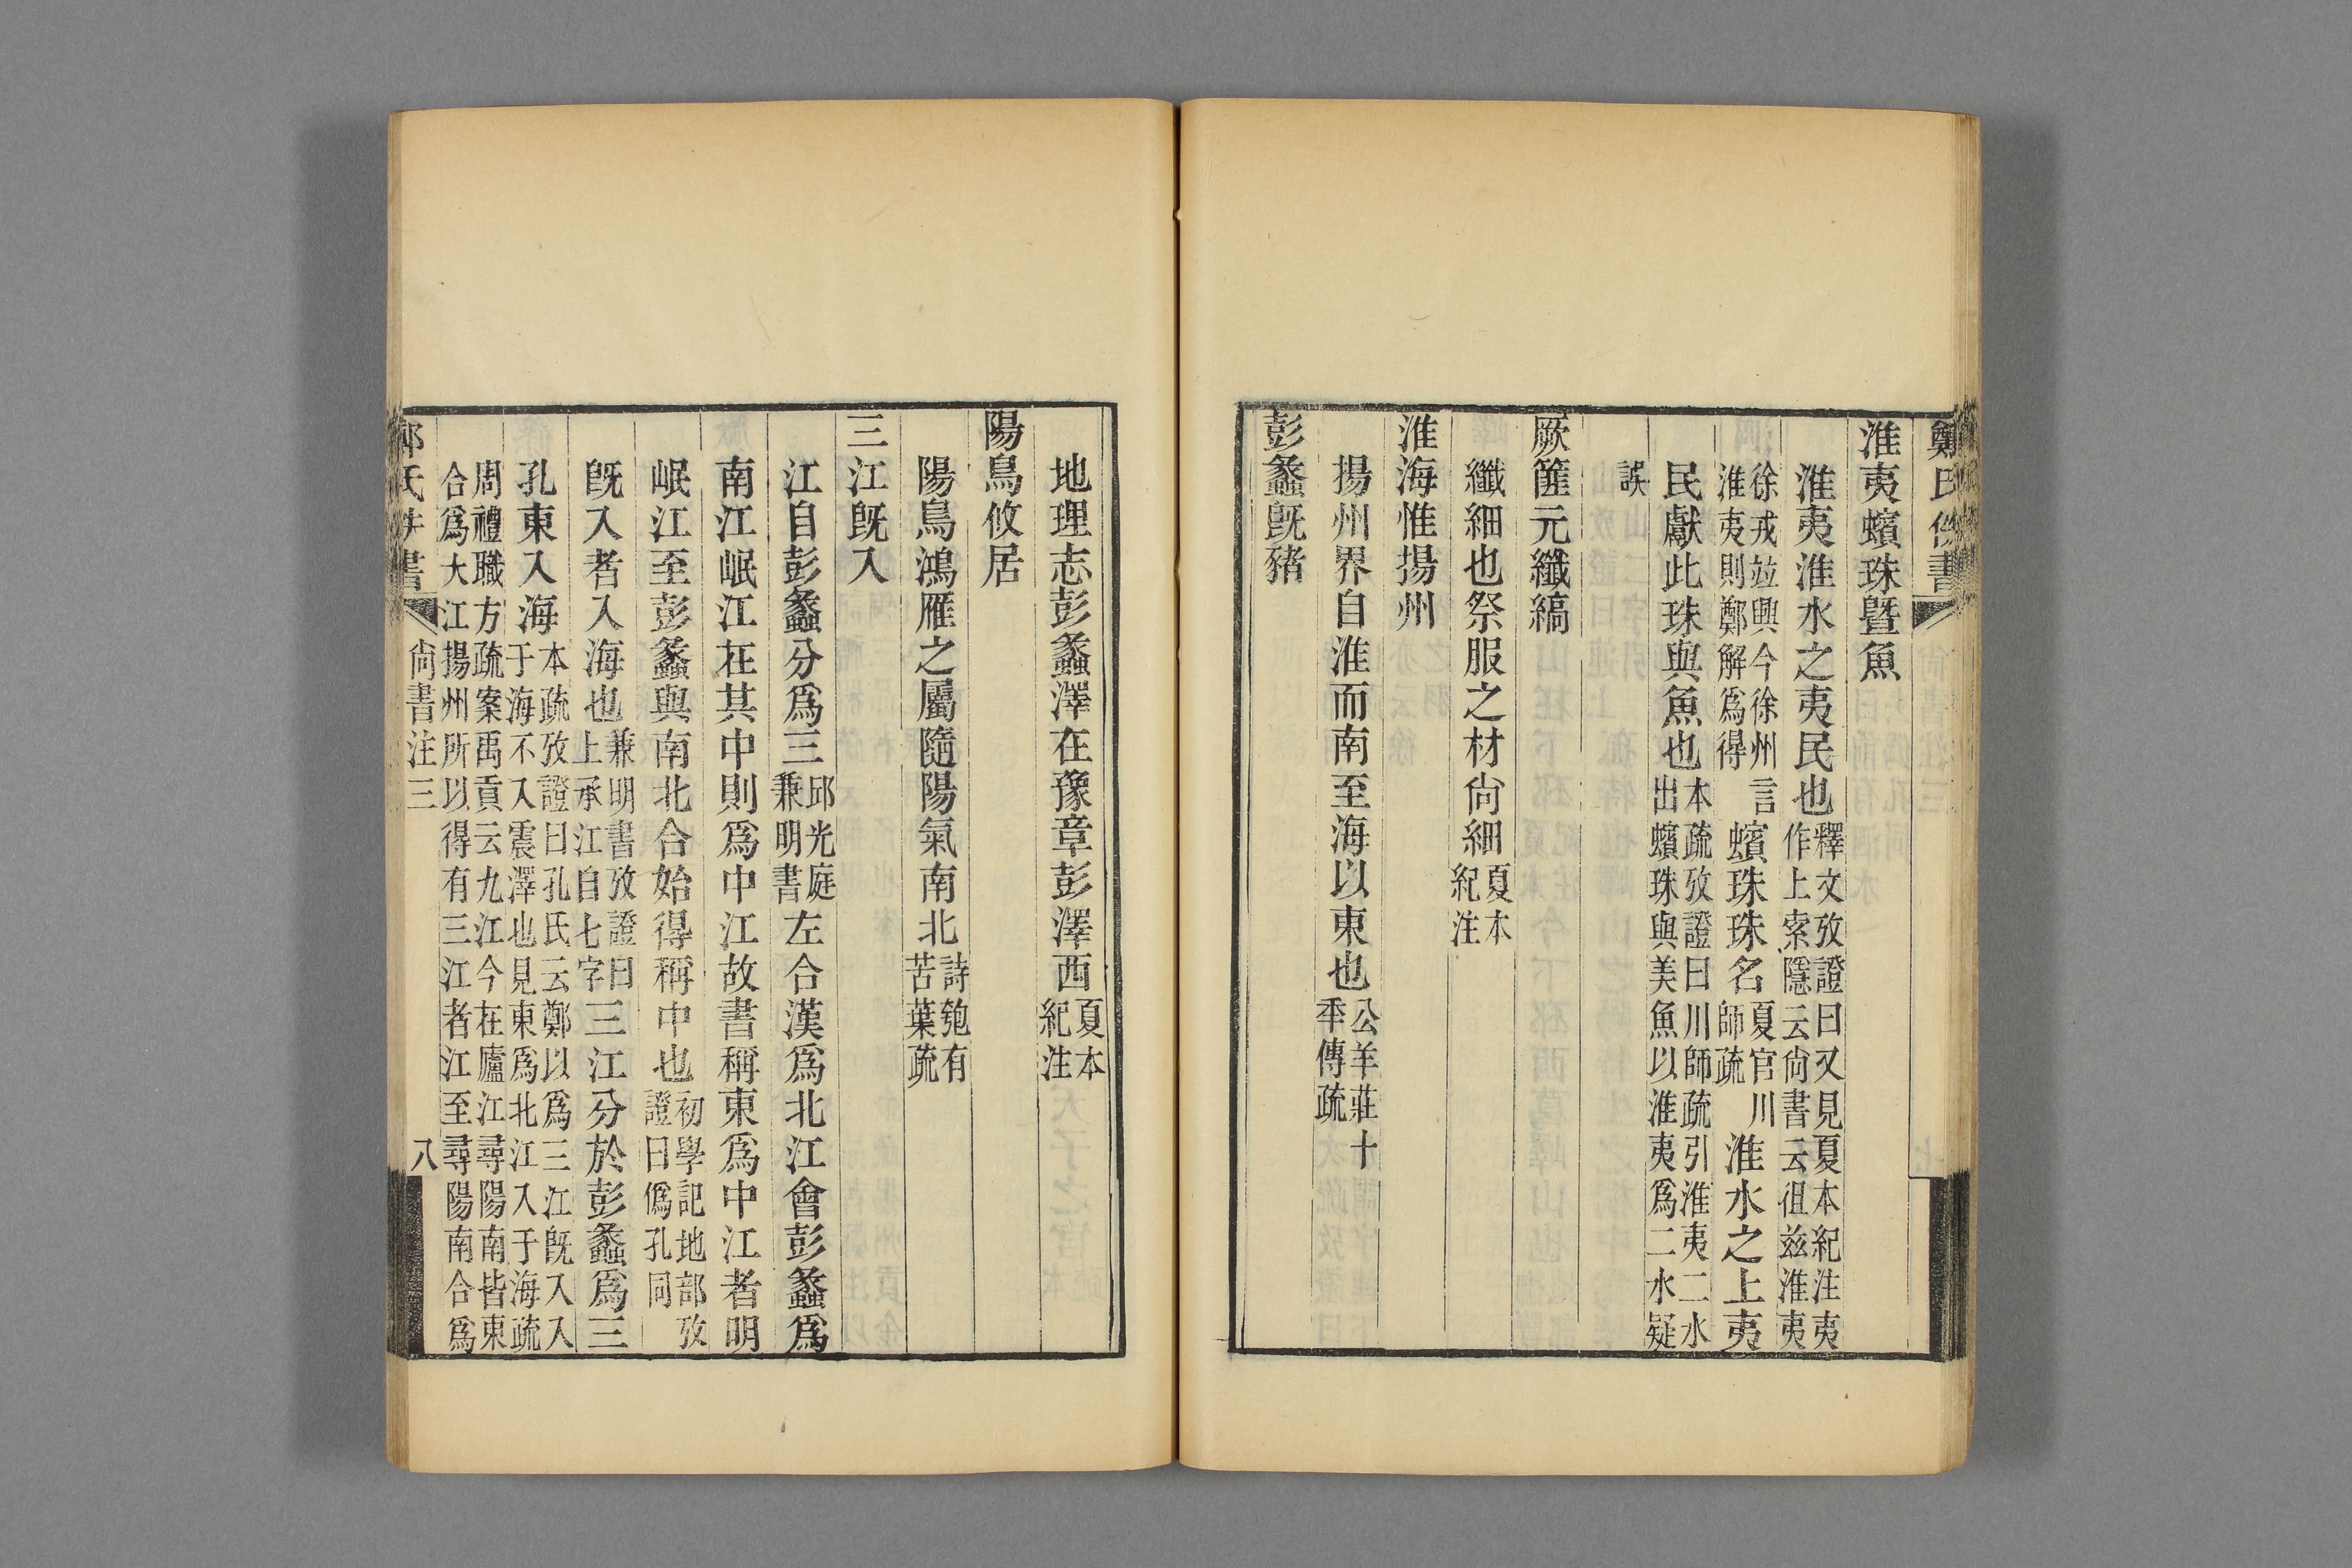 鄭氏佚書
淮夷蠙珠曁魚
淮夷淮水之夷民也釋文攷證曰又見夏本紀注夷作上索隱云尙書云徂兹淮夷
徐戎竝興今徐州言淮夷則鄭解爲得蠙珠珠名夏官川師疏淮水之上夷
民獻此珠與魚也本疏攷證曰川師疏引淮夷二水出蠙珠與美魚以淮夷爲二水疑
誤
厥篚元纖縞
纖細也祭服之材尙細夏本紀注
淮海惟揚州
揚州界自淮而南至海以東也公羊莊十秊傳疏
彭蠡旣豬
地理志彭蠡澤在豫章彭澤西夏本紀注
陽鳥攸居
陽鳥鴻雁之屬隨陽氣南北詩匏有苦葉疏
三江旣入
江自彭蠡分爲三邱光庭兼明書左合漢爲北江會彭蠡爲
南江岷江在其中則爲中江故書稱東爲中江者明
岷江至彭蠡與南北合始得稱中也初學記地部攷證曰僞孔同
旣入者入海也兼明書攷證曰上承江自七字三江分於彭蠡爲三
孔東入海本疏攷證曰孔氏云鄭以爲三江旣入入于海不入震澤也見東爲北江入于海疏
周禮職方疏案禹貢云九江今在廬江尋陽南皆東合爲大江揚州所以得有三江者江至尋陽南合爲
鄭氏佚書
尙書注三
八